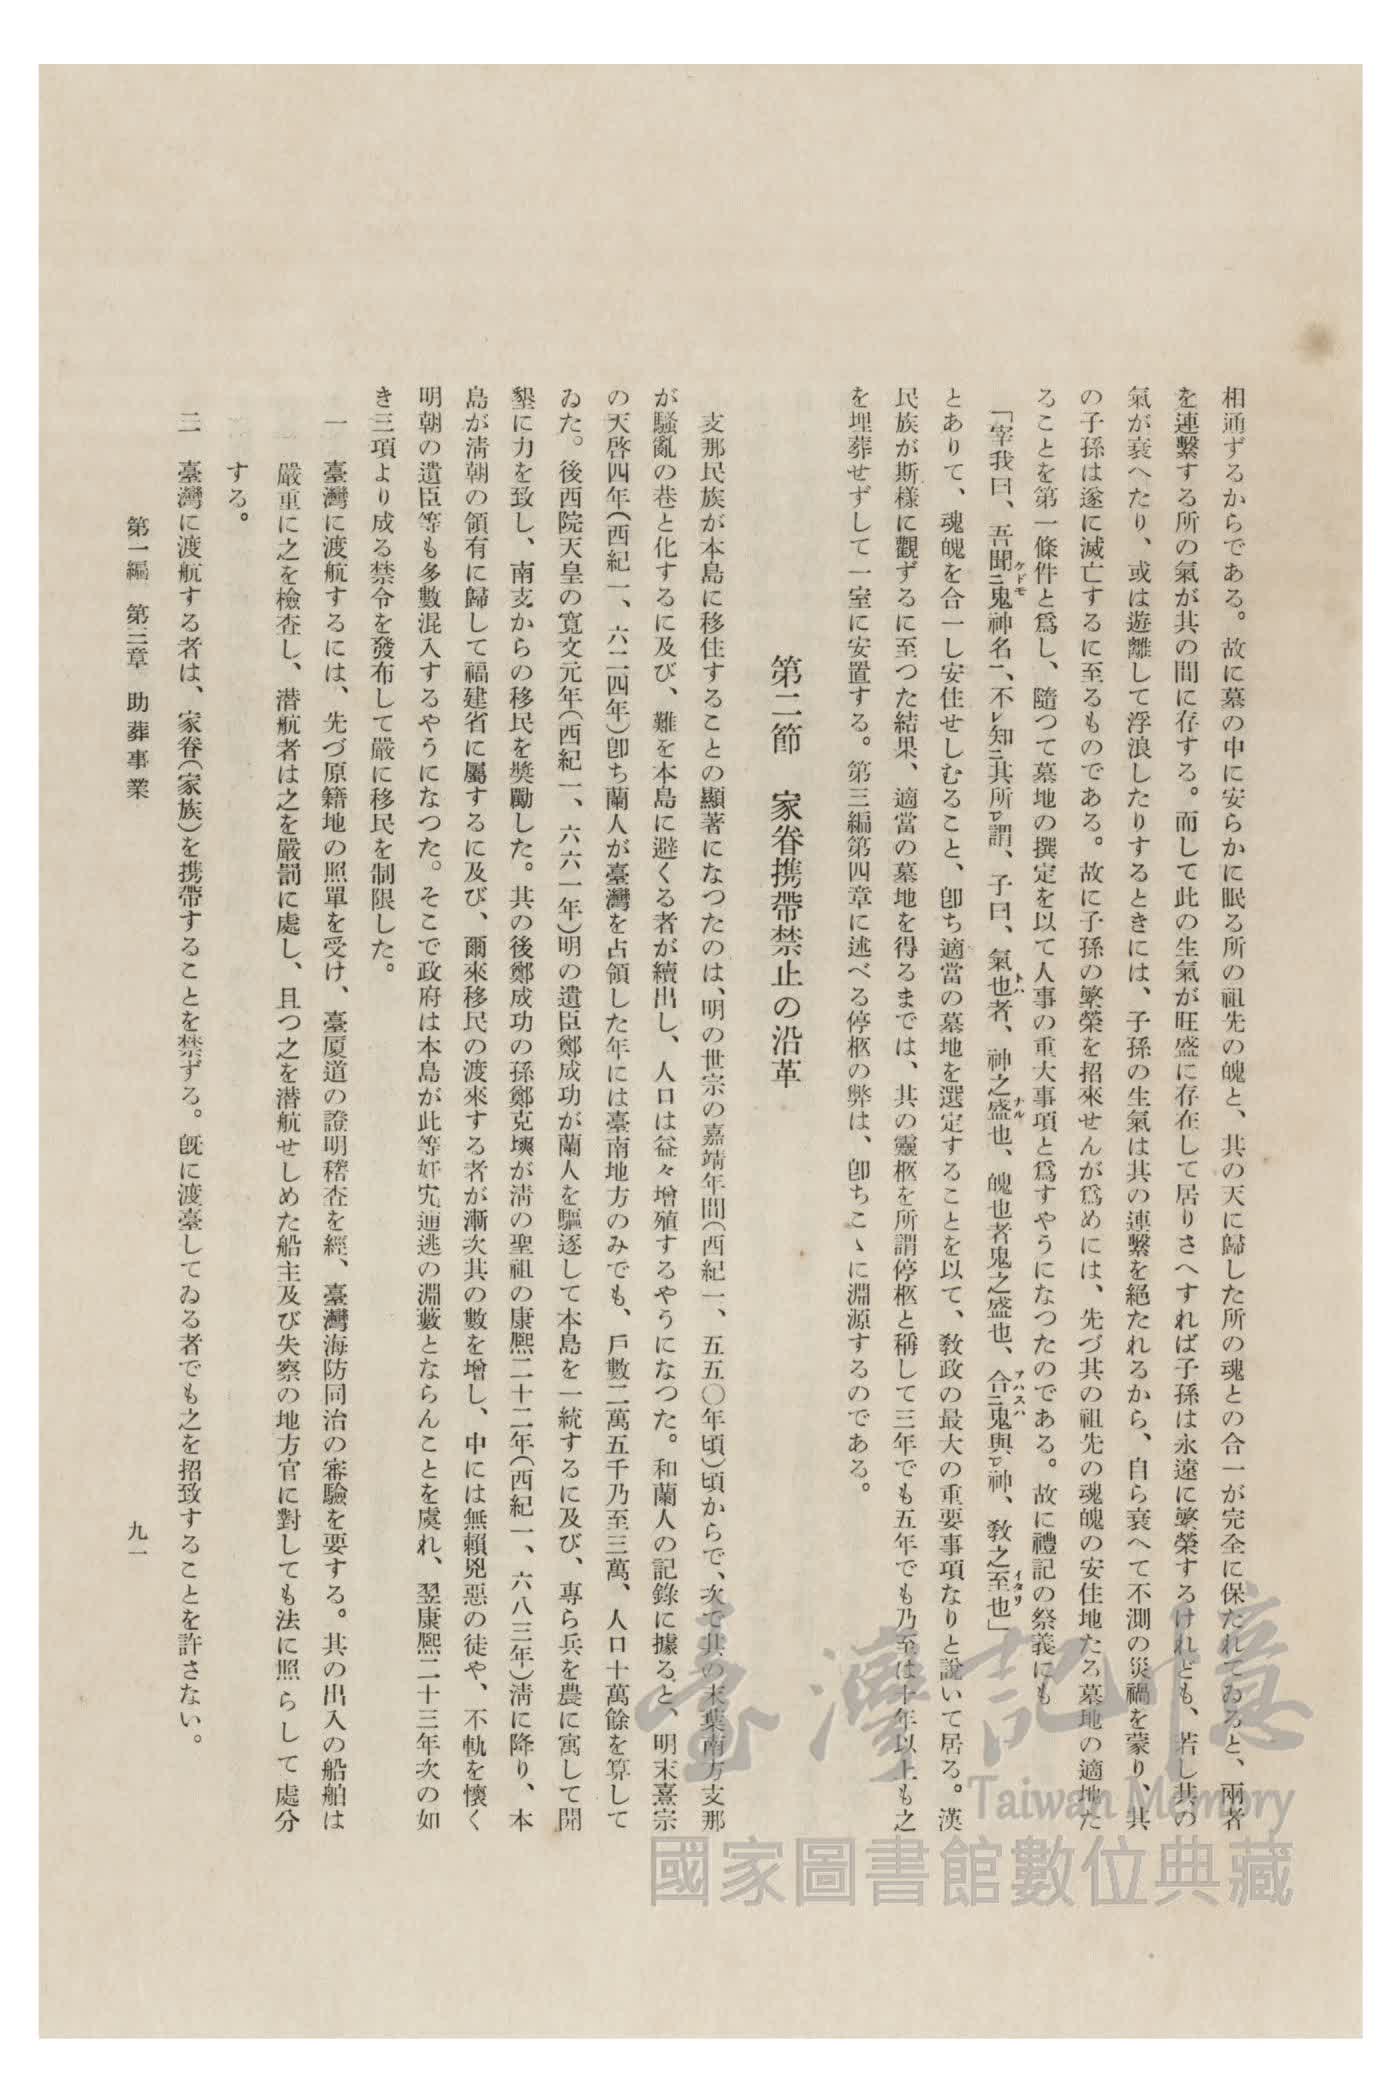 相通ずるからである。故に墓の中に安らかに眠る所の祖先の魄と、其の天に歸した所の魂との合一が完全に保たれてゐると、兩者
を連繫する所の氣が其の間に存する。而して此の生氣が旺盛に存在して居りさへすれば子孫は永遠に繁榮するけれども、若し其の
氣が衰へたり、或は遊離して浮浪したりするときには、子孫の生氣は其の連繫を絕たれるから、自ら衰へて不測の災禍を蒙り、其
の子孫は遂に滅亡するに至るものである。故に子孫の繁榮を招來せんが爲めには、先づ其の祖先の魂魄の安住地たる墓地の適地た
ることを第一條件と爲し、隨つて墓地の撰定を以て人事の重大事項と爲すやうになつたのである。故に禮記の祭義にも
「宰我曰、吾聞ケドモ二鬼神名一、不レ知三其所二謂、子曰、氣也トハ者、神之盛ナル也、魄也者鬼之盛也、合アハスハ二鬼與一神、敎之至イタリ也」
とありて、魂魄を合一し安住せしむること、卽ち適當の墓地を選定することを以て、敎政の最大の重要事項なりと說いて居る。漢
民族が斯樣に觀ずるに至つた結果、適當の墓地を得るまでは、其の靈柩を所謂停柩と稱して三年でも五年でも乃至は十年以上も之
を埋葬せずして一室に安置する。第三編第四章に述べる停柩の弊は、卽ちこゝに淵源するのである。
第二節 家眷携帶禁止の沿革
支那民族が本島に移住することの顯著になつたのは、明の世宗の嘉靖年間(西紀一、五五〇年頃)頃からで、次で其の末葉南方支那
が騷亂の巷と化するに及び、難を本島に避くる者が續出し、人口は益々增殖するやうになつた。和蘭人の記錄に據ると、明末熹宗
の天啓四年(西紀一、六二四年)卽ち蘭人が臺灣を占領した年には臺南地方のみでも、戶數二萬五千乃至三萬、人口十萬餘を算して
ゐた。後西院天皇の寬文元年(西紀一、六六一年)明の遺臣鄭成功が蘭人を驅逐して本島を一統するに及び、專ら兵を農に寓して開
墾に力を致し、南支からの移民を奬勵した。其の後鄭成功の孫鄭克塽が淸の聖祖の康熙二十二年(西紀一、六八三年)淸に降り、本
島が淸朝の領有に歸して福建省に屬するに及び、爾來移民の渡來する者が漸次其の數を增し、中には無賴兇惡の徒や、不軌を懷く
明朝の遺臣等も多數混入するやうになつた。そこで政府は本島が此等奸宄逋逃の淵藪とならんことを虞れ、翌康熙二十三年次の如
き三項より成る禁令を發布して嚴に移民を制限した。
一 臺灣に渡航するには、先づ原籍地の照單を受け、臺厦道の證明稽査を經、臺灣海防同治の審驗を要する。其の出入の船舶は
嚴重に之を檢査し、潜航者は之を嚴罰に處し、且つ之を潜航せしめた船主及び失察の地方官に對しても法に照らして處分
する。
二 臺灣に渡航する者は、家眷(家族)を携帶することを禁ずる。旣に渡臺してゐる者でも之を招致することを許さない。
第一編 第三章 助葬事業
九一
臺灣記憶
Taiwan Memory
國家圖書館數位典藏